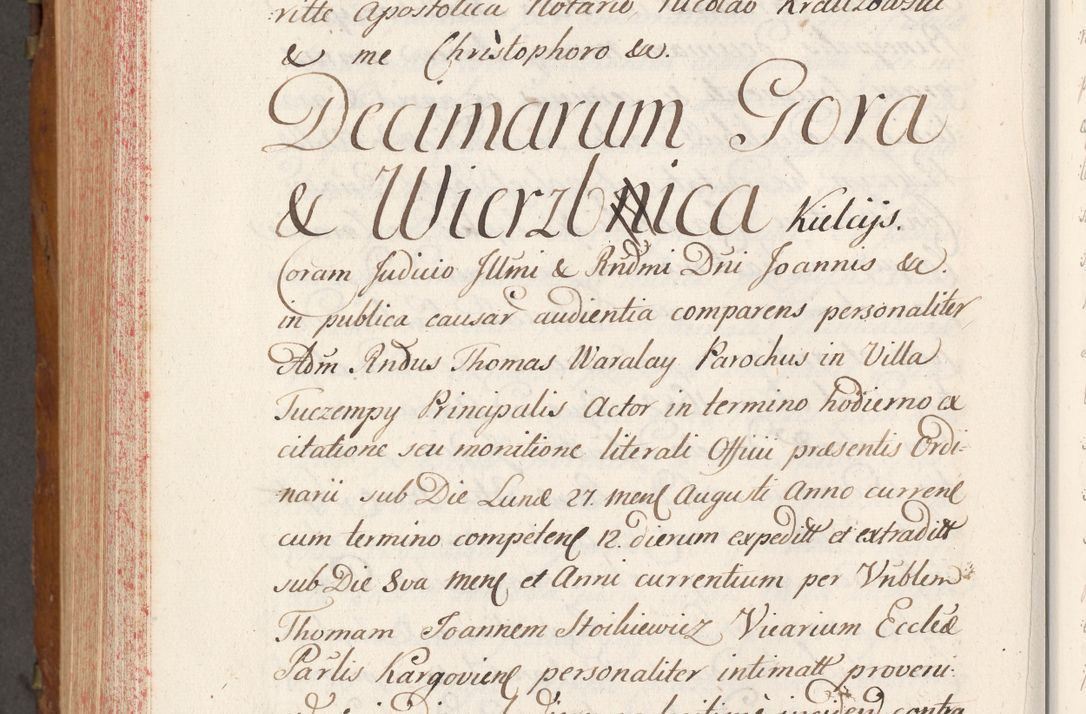 ritte Apostolica Notario, Nicolao
& me Christophoro &c.
Decimarum Gora
& Wierzbnica Kielcijs.
Coram Judicio Illmi & Rndmi Dni Joannis &c.
in publica causar audientia comparens personaliter
Adm Rndus Thomas Waralay Parochus in Villa
Tuczempy Principalis Actor in termino hodierno ex
citatione seu monitione literali Officii præsentis Ordi-
narii sub Die Lunæ 27. mens Augusti Anno currens
cum termino competens 12. dierum expeditt et extraditt
sub Die 8va mens et Anni currentium per Vnblem
Thomam Joannem Stoikiewicz Vicarium Ecclæ
Parlis Kargoviens personaliter intimatt proveni-
contra